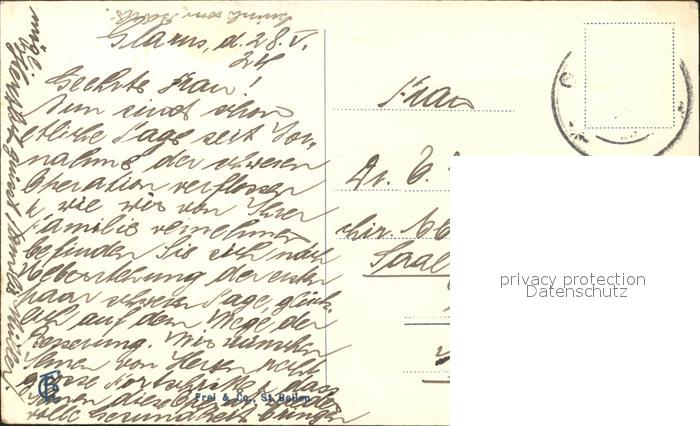 Glarus, d. 28. V.
24
Geehrte Frau!
Nun sind schon
etliche Tage seit Vor-
nahme der schweren
Operation verflossen
u wie wir von Ihrer
Familie vernehmen
befinden Sie sich nach
Ueberstehung der ersten
paar schweren Tage, glück-
lich auf dem Wege der
Besserung. Wir wünschen
Ihnen von Herzen recht
grosse Fortschritte, dass
Ihnen diese
volle Gesundheit bringen
Müller.
Frau
Dr. E.
chir. Ab
Saal
Frei & Co., St. Gallen
privacy protection
Datenschutz